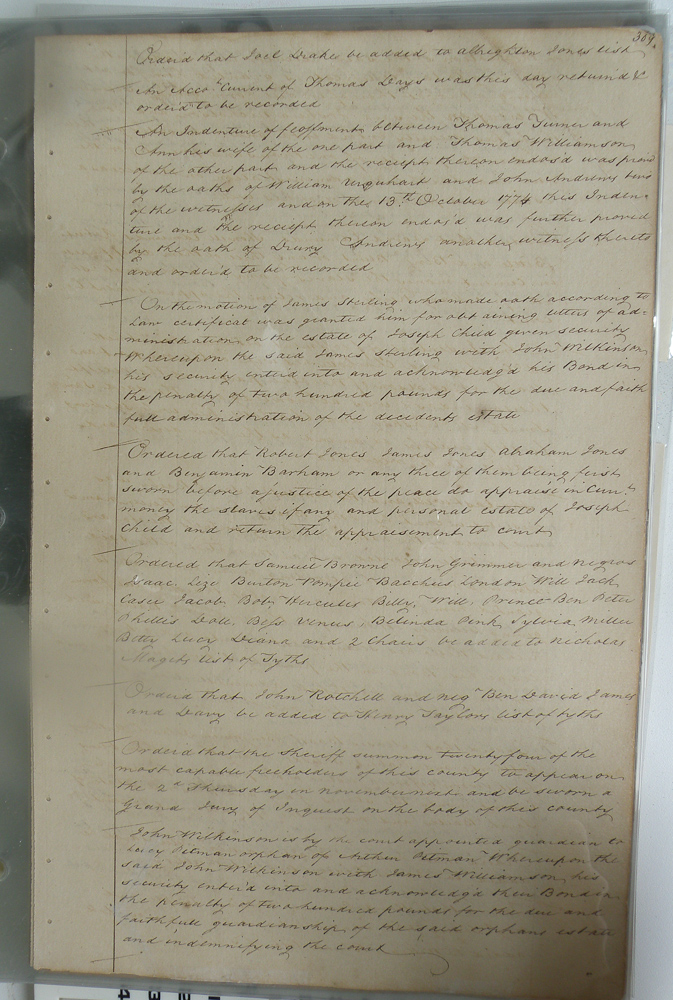 389.
Orderd that Joel Drake be added to Albrighton Jones list
An Acco.t Current of Thomas Days was this day return'd &
order'd to be recorded
An Indenture of feoffment between Thomas Turner and
Ann his wife of the one part and Thomas Williamson
of the other part and the reciept thereon endos'd was provd
by the oaths of William Urquhart and John Andrews two
of the witnesses and on the 13.th October 1774 this Inden=
ture and the reciept thereon endos'd was further proved
by the oath of Drury Andrews another witness thereto
and order'd to be recorded
On the motion of James Sterling who made oath according to
Law certificat was granted him for obtaining letters of ad=
ministration on the estate of Joseph Child given security
Whereupon the said James Sterling with John Wilkinson
his security enterd into and acknowledg'd his Bond in
the penalty of two hundred pounds for the due and faith
full administration of the decedents estate
Ordered that Robert Jones James Jones Abraham Jones
and Benjamin Barham or any three of them being first
sworn before a justice of the peace do appraise in Curr.t
money the slaves if any and personal estate of Joseph
Child and return the appraisement to court
Ordered that Samuel Browne John Grimmer and Negroes
Isaac Lize Burton Pompie Bacchus London Will Jack
Casee Jacob Bob Hercules Billy, Will, Prince Ben Peter
Phillis Doll Bess Venus, Belinda Pink Sylvia Miller
Betty Lucy Diana and 2 Chairs be added to Nicholas
Magets list of Tyths
Orderd that John Rotchell and neg.o Ben David James
and Davy be added to Henry Taylors list of tyths
Orderd that the Sheriff summon twenty four of the
most capable freeholders of this county to appear on
the 2.d Thursday in November next and be sworn a
Grand Jury of Inquest on the body of this county
John Wilkinson is by the court appointed guardian to
Lucy Pitman orphan of Arthur Pitman Whereupon the
said John Wilkinson with James Williamson his
security enter'd into and acknowledg'd their Bond in
the penalty of two hundred pounds for the due and
faithfull guardianship of the said orphans estate
and indemnifying the court